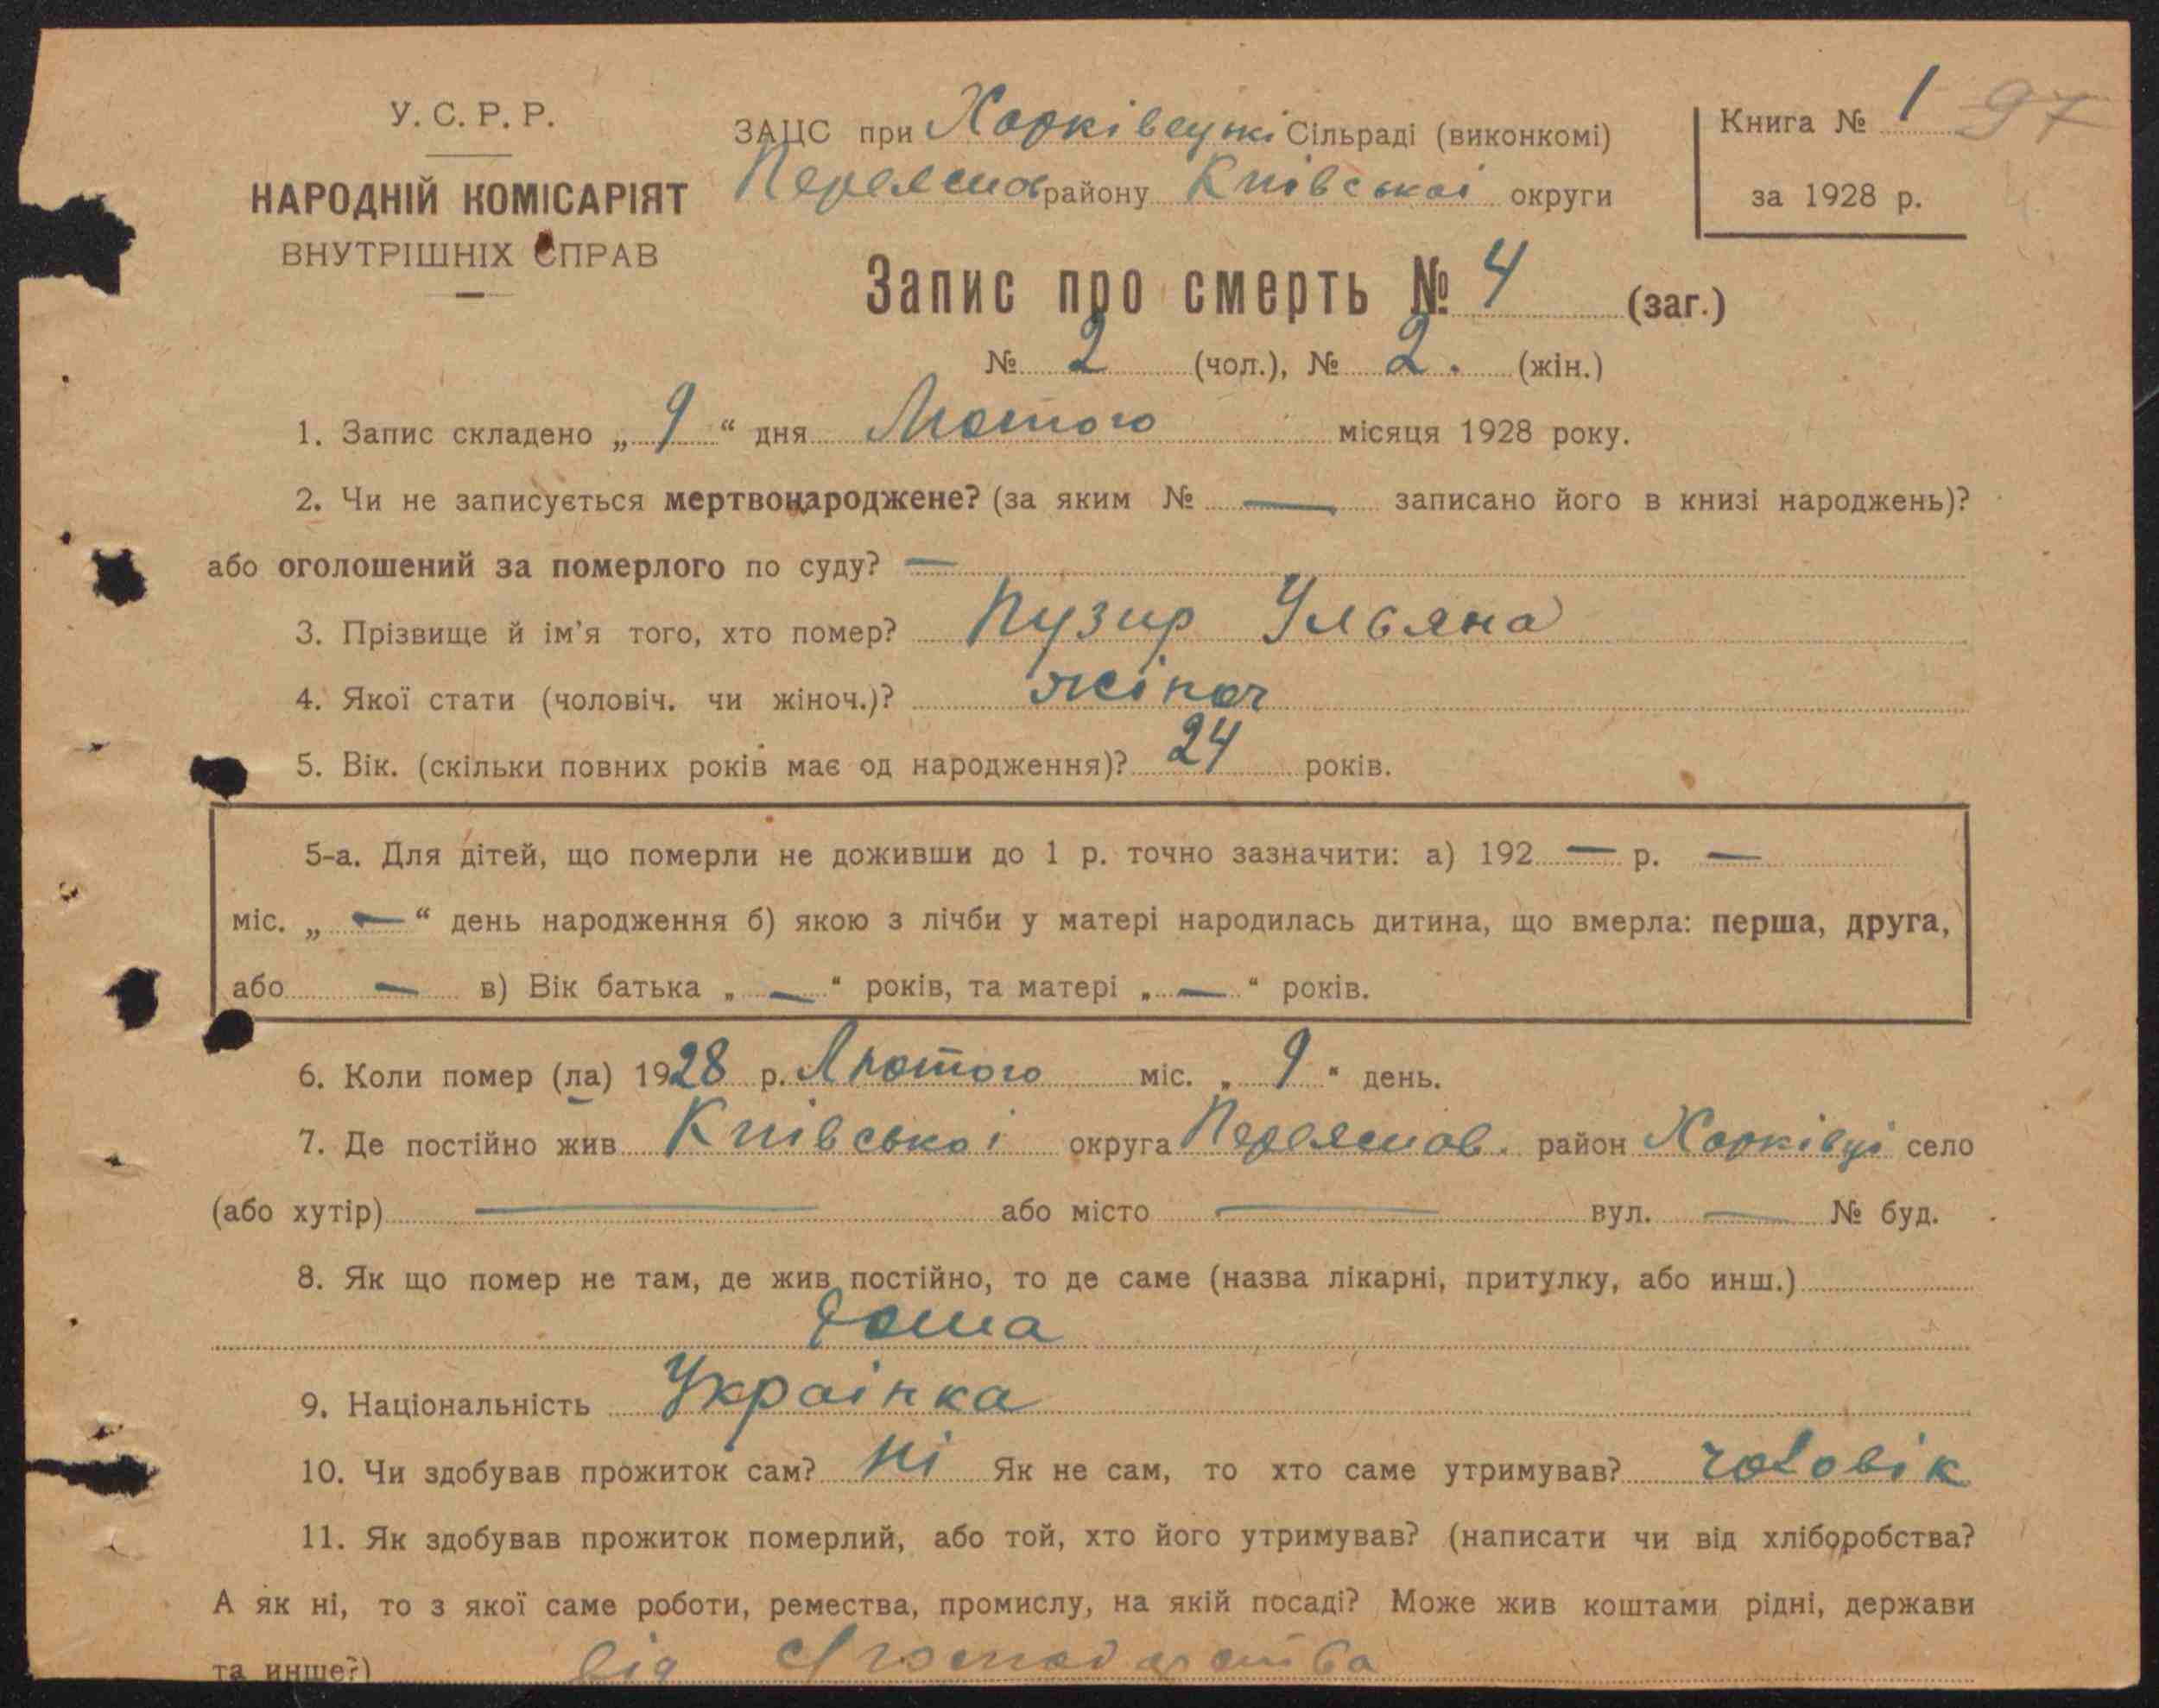 У. С. Р. Р.
НАРОДНІЙ КОМІСАРІЯТ
ВНУТРІШНІХ СПРАВ
ЗАЦС при Харківецькі Сільраді (виконкомі)
Переяслов району Киівськоі округи
Книга № 1 97
за 1928 р.
Запис про смерть № 4 (заг.)
№ 2 (чол.), № 2. (жін.)
1. Запис складено „ 9 “ дня Лютого місяця 1928 року.
2. Чи не записується мертвонароджене? (за яким № — записано його в книзі народжень)?
або оголошений за померлого по суду? —
3. Прізвище й ім'я того, хто помер? Пузир Ульяна
4. Якої стати (чоловіч. чи жіноч.)? жіноч
5. Вік. (скільки повних років має од народження)? 24 років.
5-а. Для дітей, що померли не доживши до 1 р. точно зазначити: а) 192 — р. —
міс. „ — “ день народження б) якою з лічби у матері народилась дитина, що вмерла: перша, друга,
або — в) Вік батька „ — “ років, та матері „ — “ років.
6. Коли помер (ла) 1928 р. Лютого міс. „ 9 “ день.
7. Де постійно жив Киівськоі округа Переяслов. район Харківці село
(або хутір) — або місто — вул. — № буд.
8. Як що помер не там, де жив постійно, то де саме (назва лікарні, притулку, або инш.)
дома
9. Національність Украінка
10. Чи здобував прожиток сам? Ні Як не сам, то хто саме утримував? чоловік
11. Як здобував прожиток померлий, або той, хто його утримував? (написати чи від хліборобства?
А як ні, то з якої саме роботи, ремества, промислу, на якій посаді? Може жив коштами рідні, держави
та инше?) від